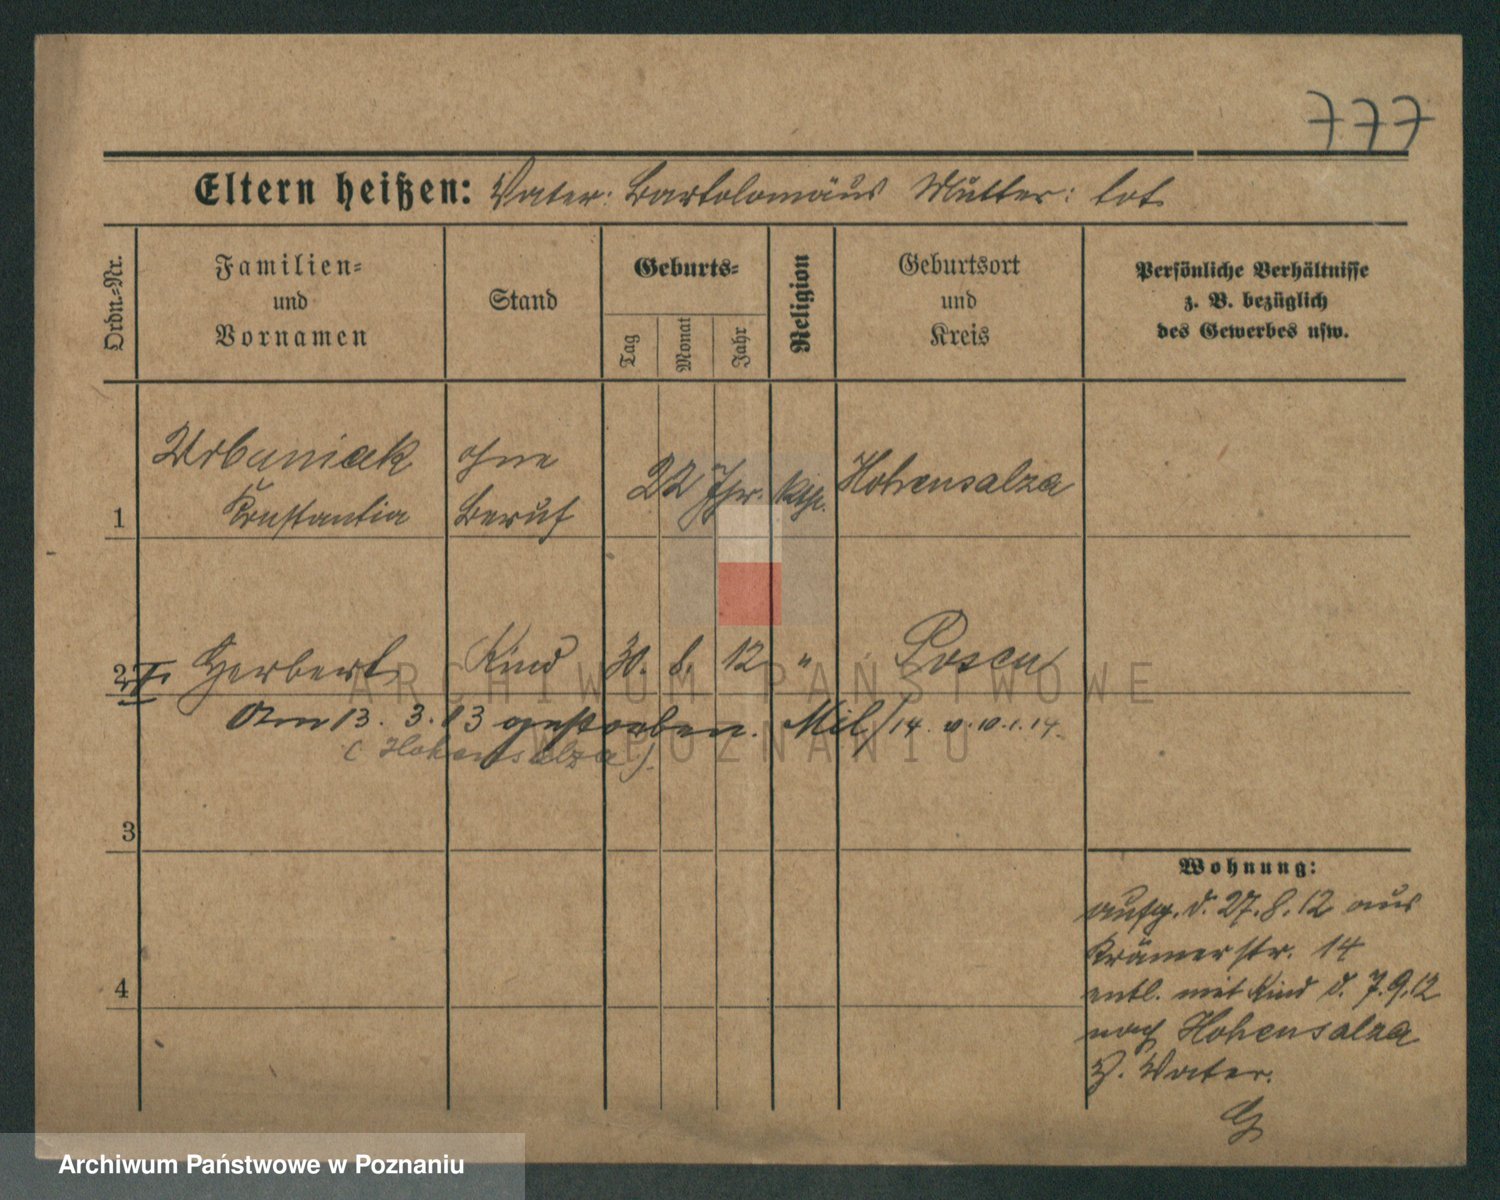 777
Eltern heißen: Vater: Bartolomäus Mutter: tot.
Ordn.-Nr.
Familien-
und
Vornamen
Stand
Geburts-
Tag
Monat
Jahr
Religion
Geburtsort
und
Kreis
Persönliche Verhältnisse
z. B. bezüglich
des Gewerbes usw.
1
Urbaniak
Konstantia
ohne
Beruf
22 Jhr.
kth.
Hohensalza
2
Herbert
Kind
30. 8. 12
"
Posen
Am 13. 3. 13 gestorben. Mil/14. v. 10.1.14.
(Hohensalza).
3
4
Wohnung:
aufg. d. 27.8.12 aus
Krämerstr. 14
entl. mit Kind d. 7.9.12
nach Hohensalza
z. Vater.
ARCHIWUM PAŃSTWOWE
W POZNANIU
Archiwum Państwowe w Poznaniu